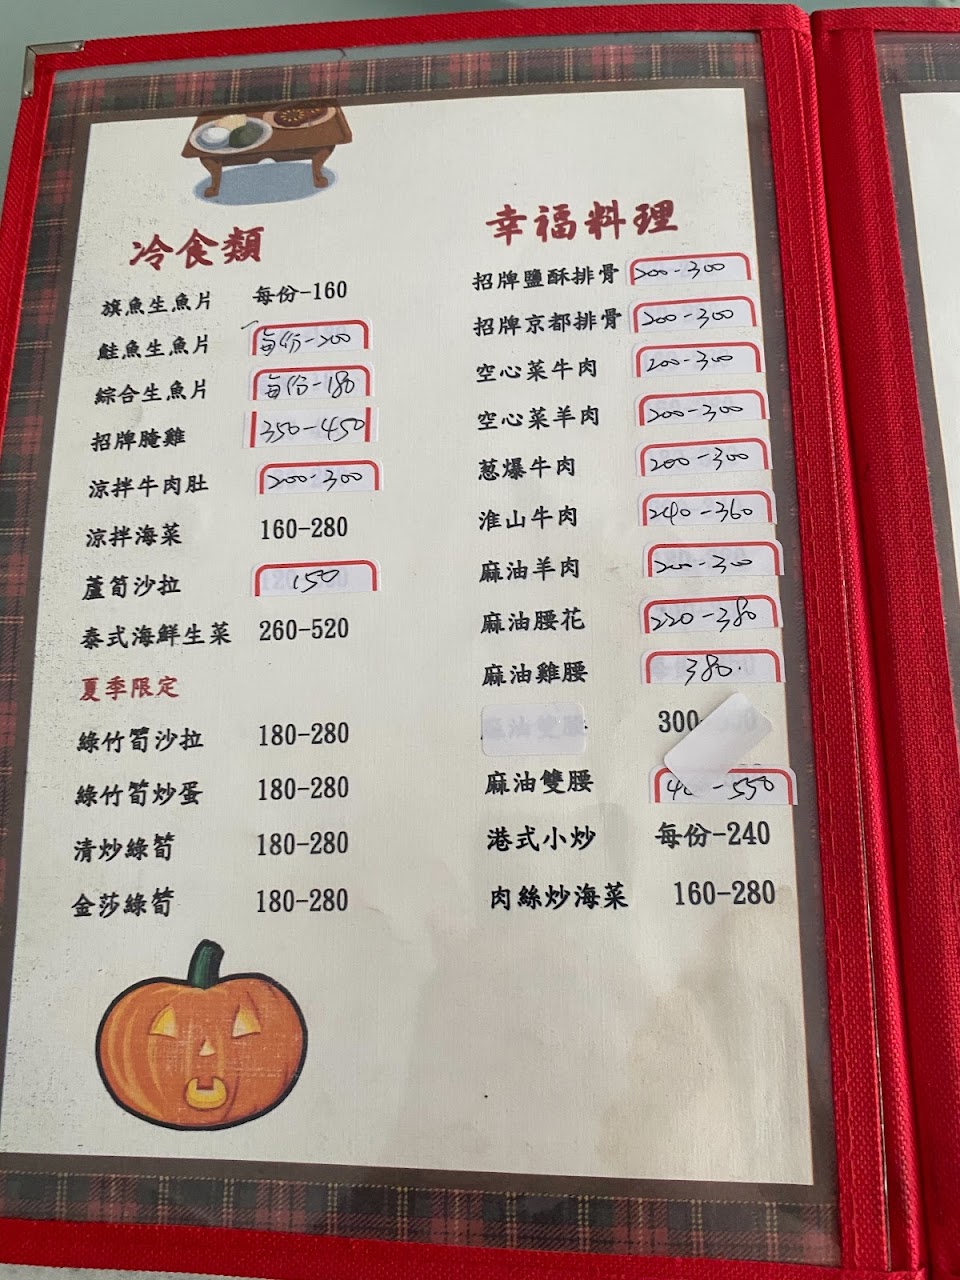 冷食類
旗魚生魚片 每份-160
鮭魚生魚片 每份-200
綜合生魚片 每份-180
招牌醃雞 350-450
涼拌牛肉肚 200-300
涼拌海菜 160-280
蘆筍沙拉 150
泰式海鮮生菜 260-520
夏季限定
綠竹筍沙拉 180-280
綠竹筍炒蛋 180-280
清炒綠筍 180-280
金莎綠筍 180-280
幸福料理
招牌鹽酥排骨 200-300
招牌京都排骨 200-300
空心菜牛肉 200-300
空心菜羊肉 200-300
蔥爆牛肉 200-300
淮山牛肉 240-360
麻油羊肉 200-300
麻油腰花 220-380
麻油雞腰 380
300
麻油雙腰 -550
港式小炒 每份-240
肉絲炒海菜 160-280